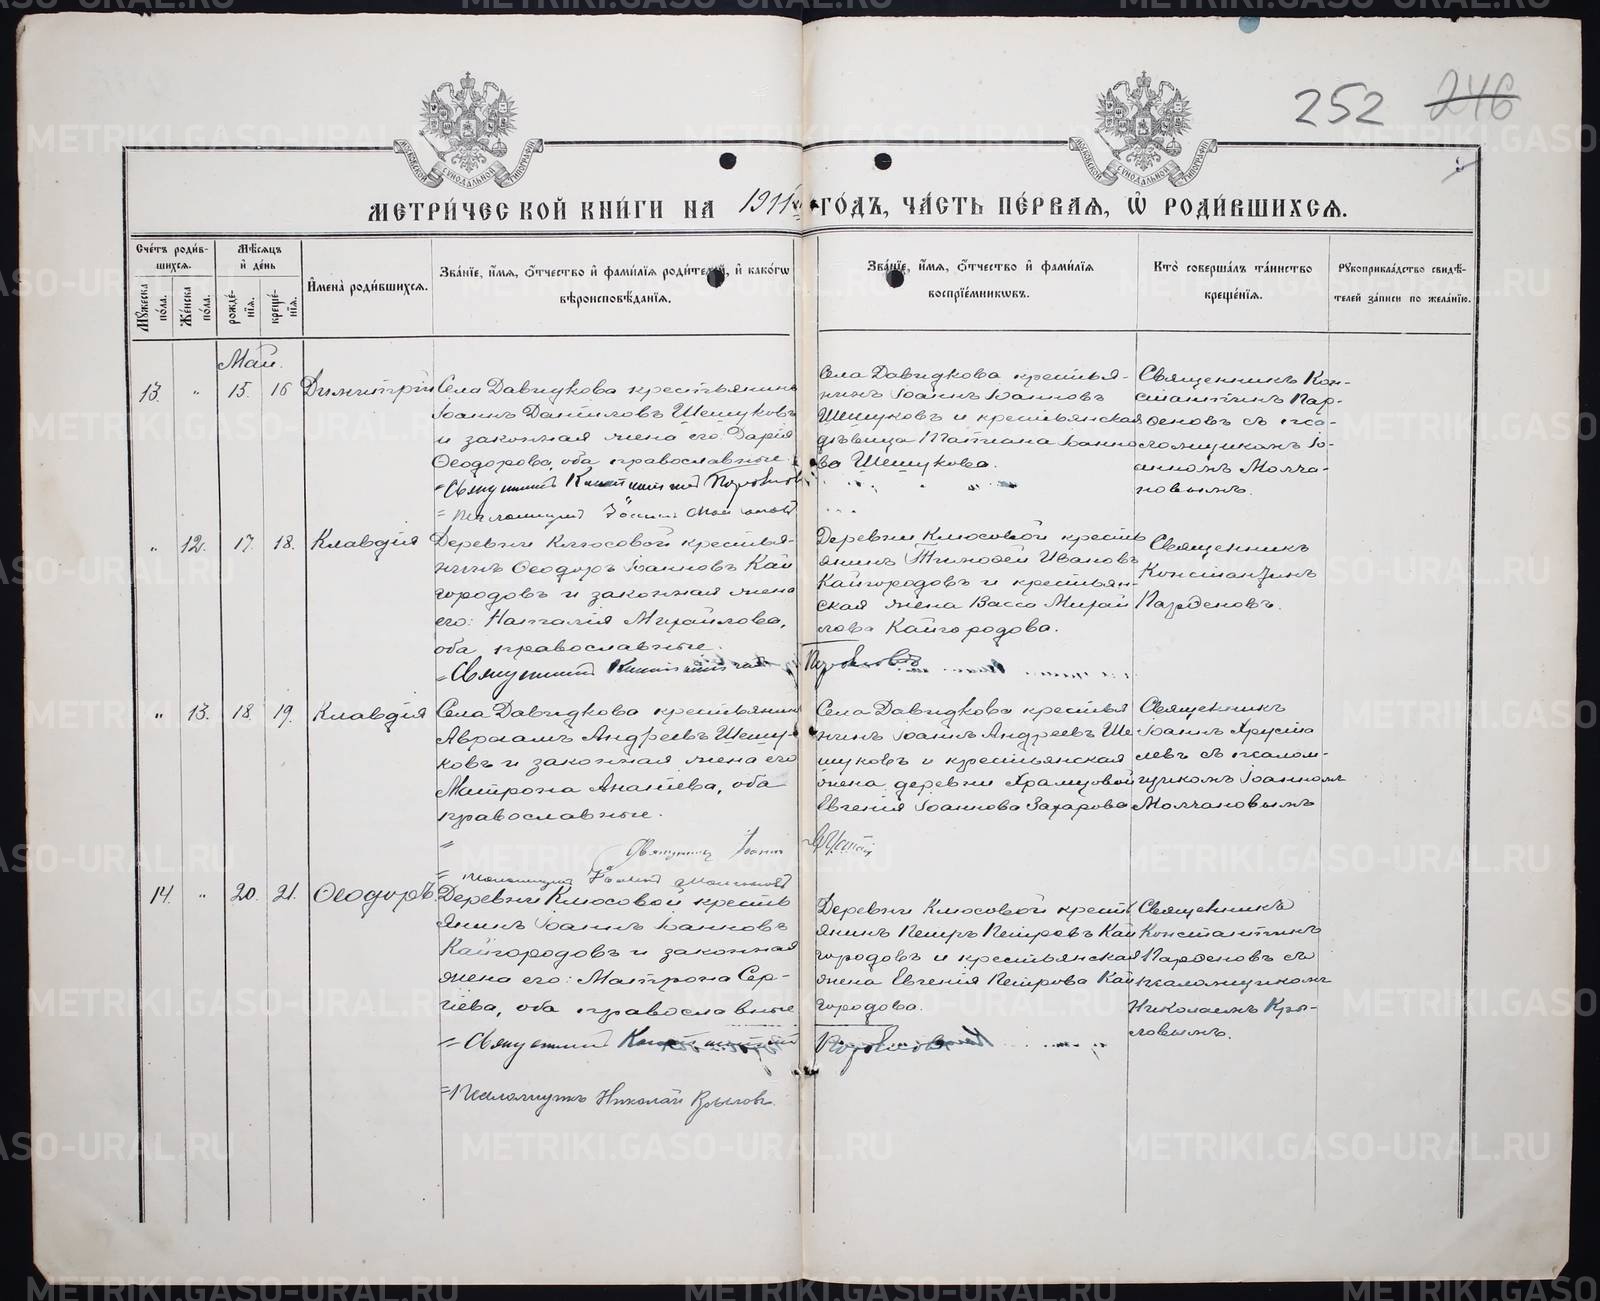 252 246
МОСКОВСКОЙ СУНОДАЛЬНОЙ ТИПОГРАФІИ
МОСКОВСКОЙ СУНОДАЛЬНОЙ ТИПОГРАФІИ
МЕТРИ́ЧЕСКОЙ КНИ́ГИ НА 1911й ГО́ДЪ, ЧА́СТЬ ПЕ́РВАЯ, Ѽ РОДИ́ВШИХСѦ.
Сче́тъ роди́в-
шихсѧ.
Мꙋ́жеска по́ла.
Же́нска по́ла.
Мѣ́сѧцъ
и҆ де́нь
рожде́-
нїѧ.
креще́-
нїѧ.
И҆мена̀ роди́вшихсѧ.
Зва́нїе, и҆́мѧ, ѻ҆́тчество и҆ фами́лїѧ роди́телей, и҆ како́гѡ
вѣроисповѣ́данїѧ.
Зва́нїе, и҆́мѧ, ѻ҆́тчество и҆ фами́лїѧ
воспрїе́мниковъ.
Кто̀ соверша́лъ та́инство
креще́нїѧ.
Рꙋкоприкла́дство свидѣ́-
телей за́писи по жела́нїю.
Май.
13. " 15. 16 Димитрій
Села Давыдкова крестьянинъ
Іоаннъ Даніиловъ Шешуковъ
и законная жена его Дарія
Ѳеодорова, оба православные.
= Священникъ Константинъ Парѳеновъ
= Псаломщикъ Іоаннъ Молчановъ
Села Давыдкова крестья-
нинъ Іоаннъ Іоанновъ
Шешуковъ и крестьянская
дѣвица Татиана Іоанно
ва Шешукова.
Священникъ Кон-
стантинъ Пар-
ѳеновъ съ пса-
ломщикомъ Іо-
анномъ Молча-
новымъ.
" 12. 17. 18. Клавдія
Деревни Клюсовой крестья-
нинъ Ѳеодоръ Іоанновъ Кай
городовъ и законная жена
его: Наталія Михайлова,
оба православные.
= Священникъ Константинъ Парѳеновъ
Деревни Клюсовой кресть
янинъ Тимоѳей Ивановъ
Кайгородовъ и крестьян-
ская жена Васса Михай
лова Кайгородова.
Священникъ
Константинъ
Парѳеновъ.
" 13. 18. 19. Клавдія
Села Давыдкова крестьянинъ
Авраамъ Андреевъ Шешу-
ковъ и законная жена его
Митрона Ананіева, оба
православные.
= Священникъ Іоаннъ
= Псаломщикъ Іоаннъ Молчановъ
Села Давыдкова крестья
нинъ Іоаннъ Андреевъ Ше
шуковъ и крестьянская
жена деревни Храмцовой
Евгенія Іоаннова Захарова
Священникъ
Іоаннъ Хруста
левъ съ псалом-
щикомъ Іоанномъ
Молчановымъ
14. " 20. 21. Ѳеодоръ.
Деревни Клюсовой кресть
янинъ Іоаннъ Іоанновъ
Кайгородовъ и законная
жена его: Матрона Сер-
гіева, оба православные
= Священникъ Константинъ Парѳеновъ
= Псаломщикъ Николай Крыловъ
Деревни Клюсовой кресть
янинъ Петръ Петровъ Кай
городовъ и крестьянская
жена Евгенія Петрова Кай
городова.
Священникъ
Константинъ
Парѳеновъ съ
псаломщикомъ
Николаемъ Кры-
ловымъ.
METRIKI.GASO-URAL.RU